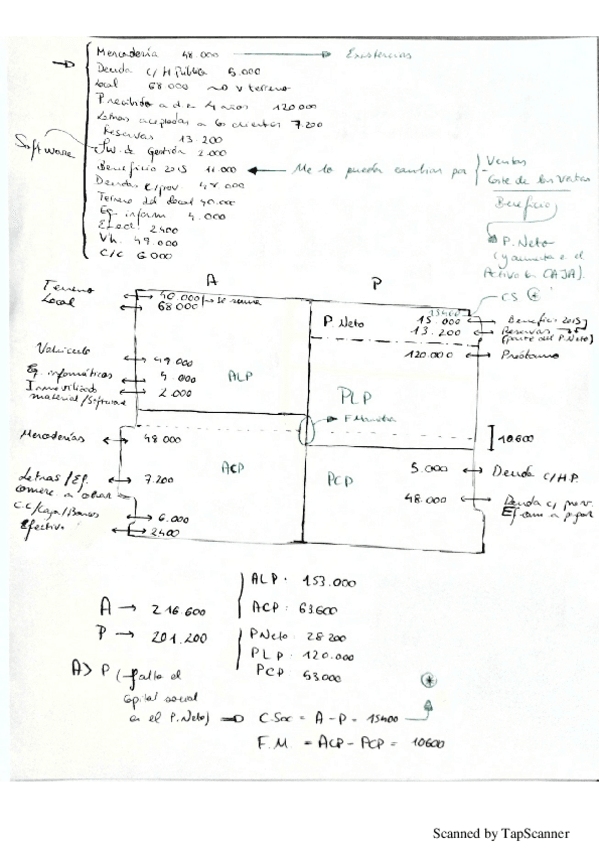 Mercadería 48.000 → Existencias
Deuda c/ H Pública 5.000
Local 68.000 → v terreno
P recibido a d. 4 años 120.000
Letras aceptadas a los clientes 7.200
Reservas 13.200
Software
Sw. de Gestión 2.000
Beneficio 2015 ← Me lo pueden cambiar por Ventas
Coste de las ventas
Beneficio
Deudas c/prov. 48.000
Terreno del local 40.000
Eq. inform 4.000
Efect. 2400
Vh. 49.000
C/C 6000
P. Neto
(y aumenta en el
Activo en CAJA).
A P
Terreno 40.000
Local 68000
CS *
15400
P. Neto 15 000 Beneficio 2015
13.200 Reservas
(parte del P. Neto)
120.000 Préstamo
Vehículo 49000
Eq. informáticos 4 000
Inmovilizado
material/Software 2.000
ALP
PLP
F Maniobra
10600
Mercaderías 48 000
ACP
PCP
5.000 Deuda c/H.P.
Letras/Ef. 7.200
48.000 Deuda c/ prov.
C.C/Caja/Bancos 6.000
Efectivo 2400
ALP. 153.000
A → 216 600
ACP: 63600
P → 201.200
P Neto: 28 200
PLP: 120.000
PCP 53000
A > P (falta el
capital social
en el P. Neto) ⇒ C. Soc = A - P = 15400 → *
F. M. = ACP - PCP = 10600
Scanned by TapScanner